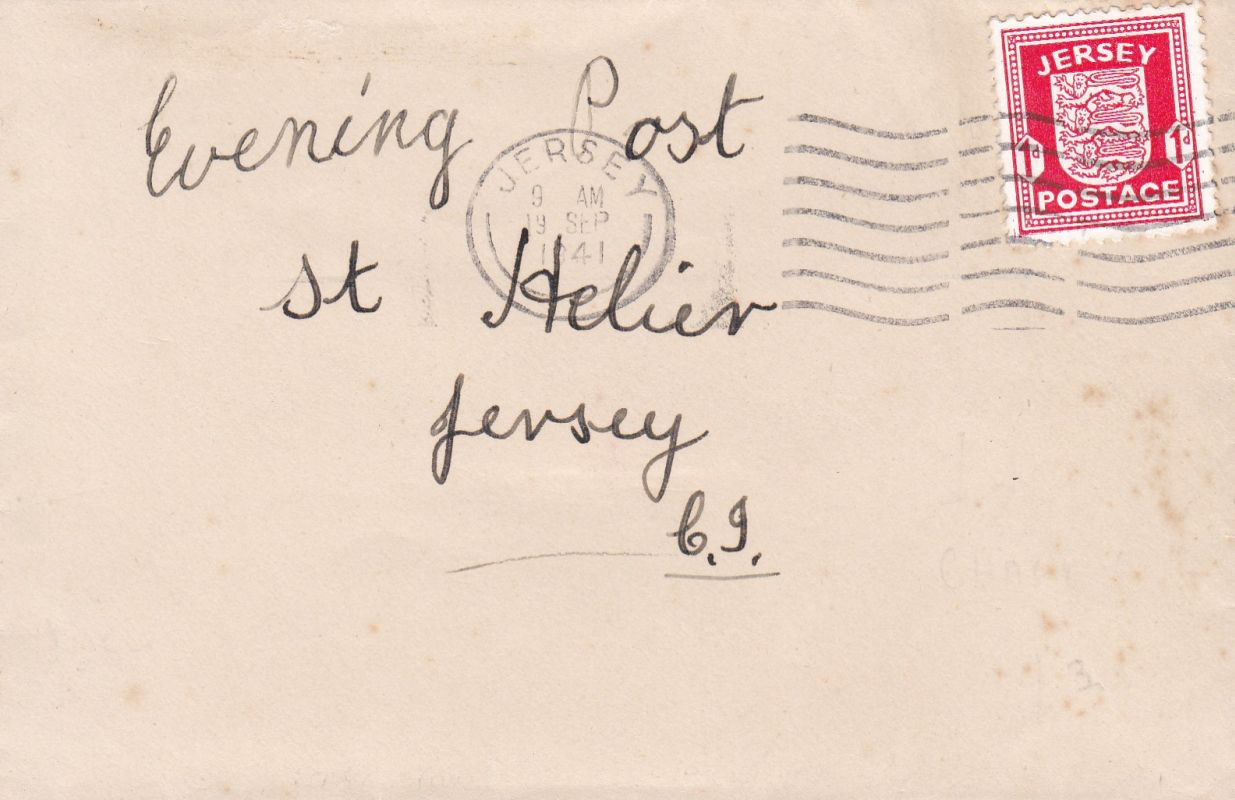 JERSEY
1ᴰ 1ᴰ
POSTAGE
Evening Post
JERSEY
9 AM
19 SEP
1941
St Helier
Jersey
C.I.
3